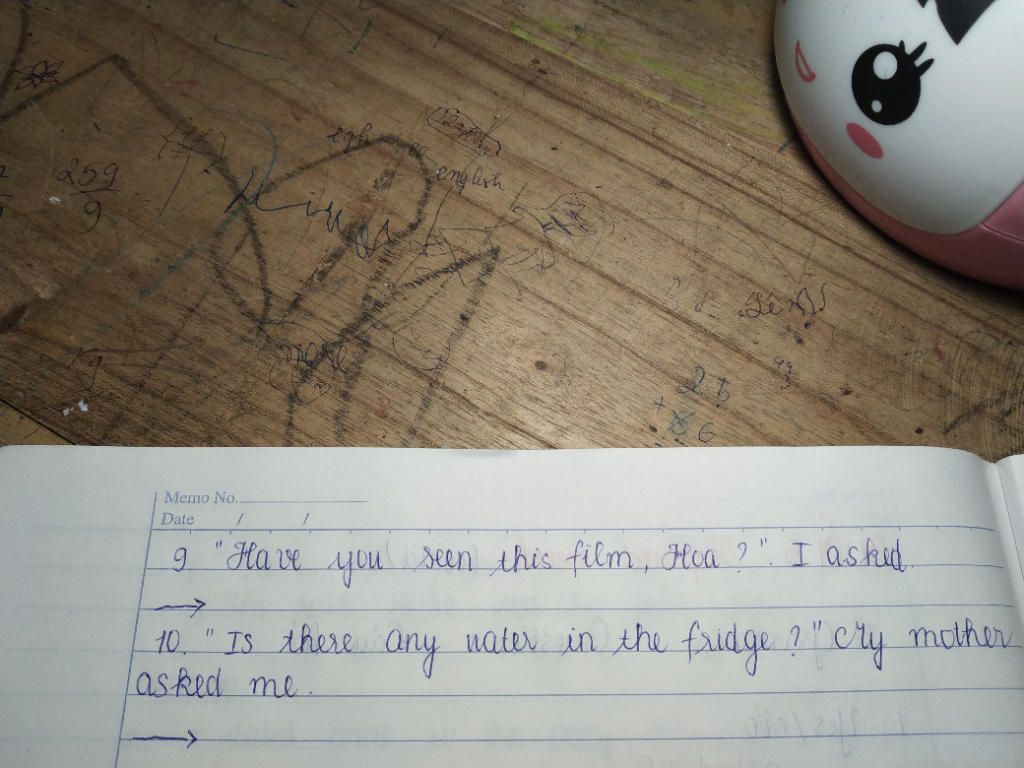 259
9
english
25
+
6
Memo No.
Date / /
9 "Have you seen this film, Hoa ?". I asked.
→
10. "Is there any water in the fridge ?" My mother
asked me.
→